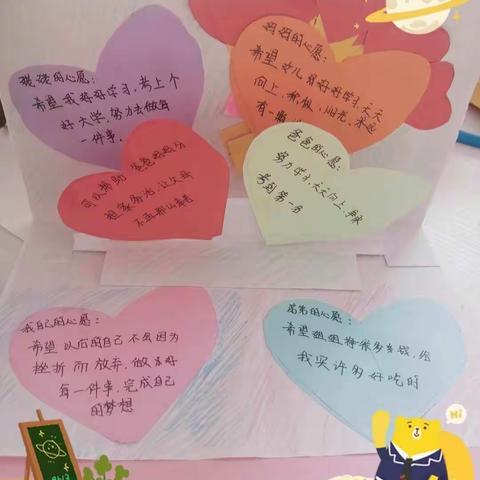 希望我好好学习,考上个
好大学,努力去做每
一件事。
妈妈的心愿:
希望女儿好好学习,天天
向上,
可以帮助爸爸妈妈分
担家务活,让父母
爸爸的心愿:
努力学习,天天向上,争取
考到第一名
我自己的心愿:
希望以后的自己不会因为
挫折而放弃,做好
每一件事,完成自己
的梦想
弟弟的心愿:
希望姐姐挣很多多钱,给
我买许多好吃的
Hi